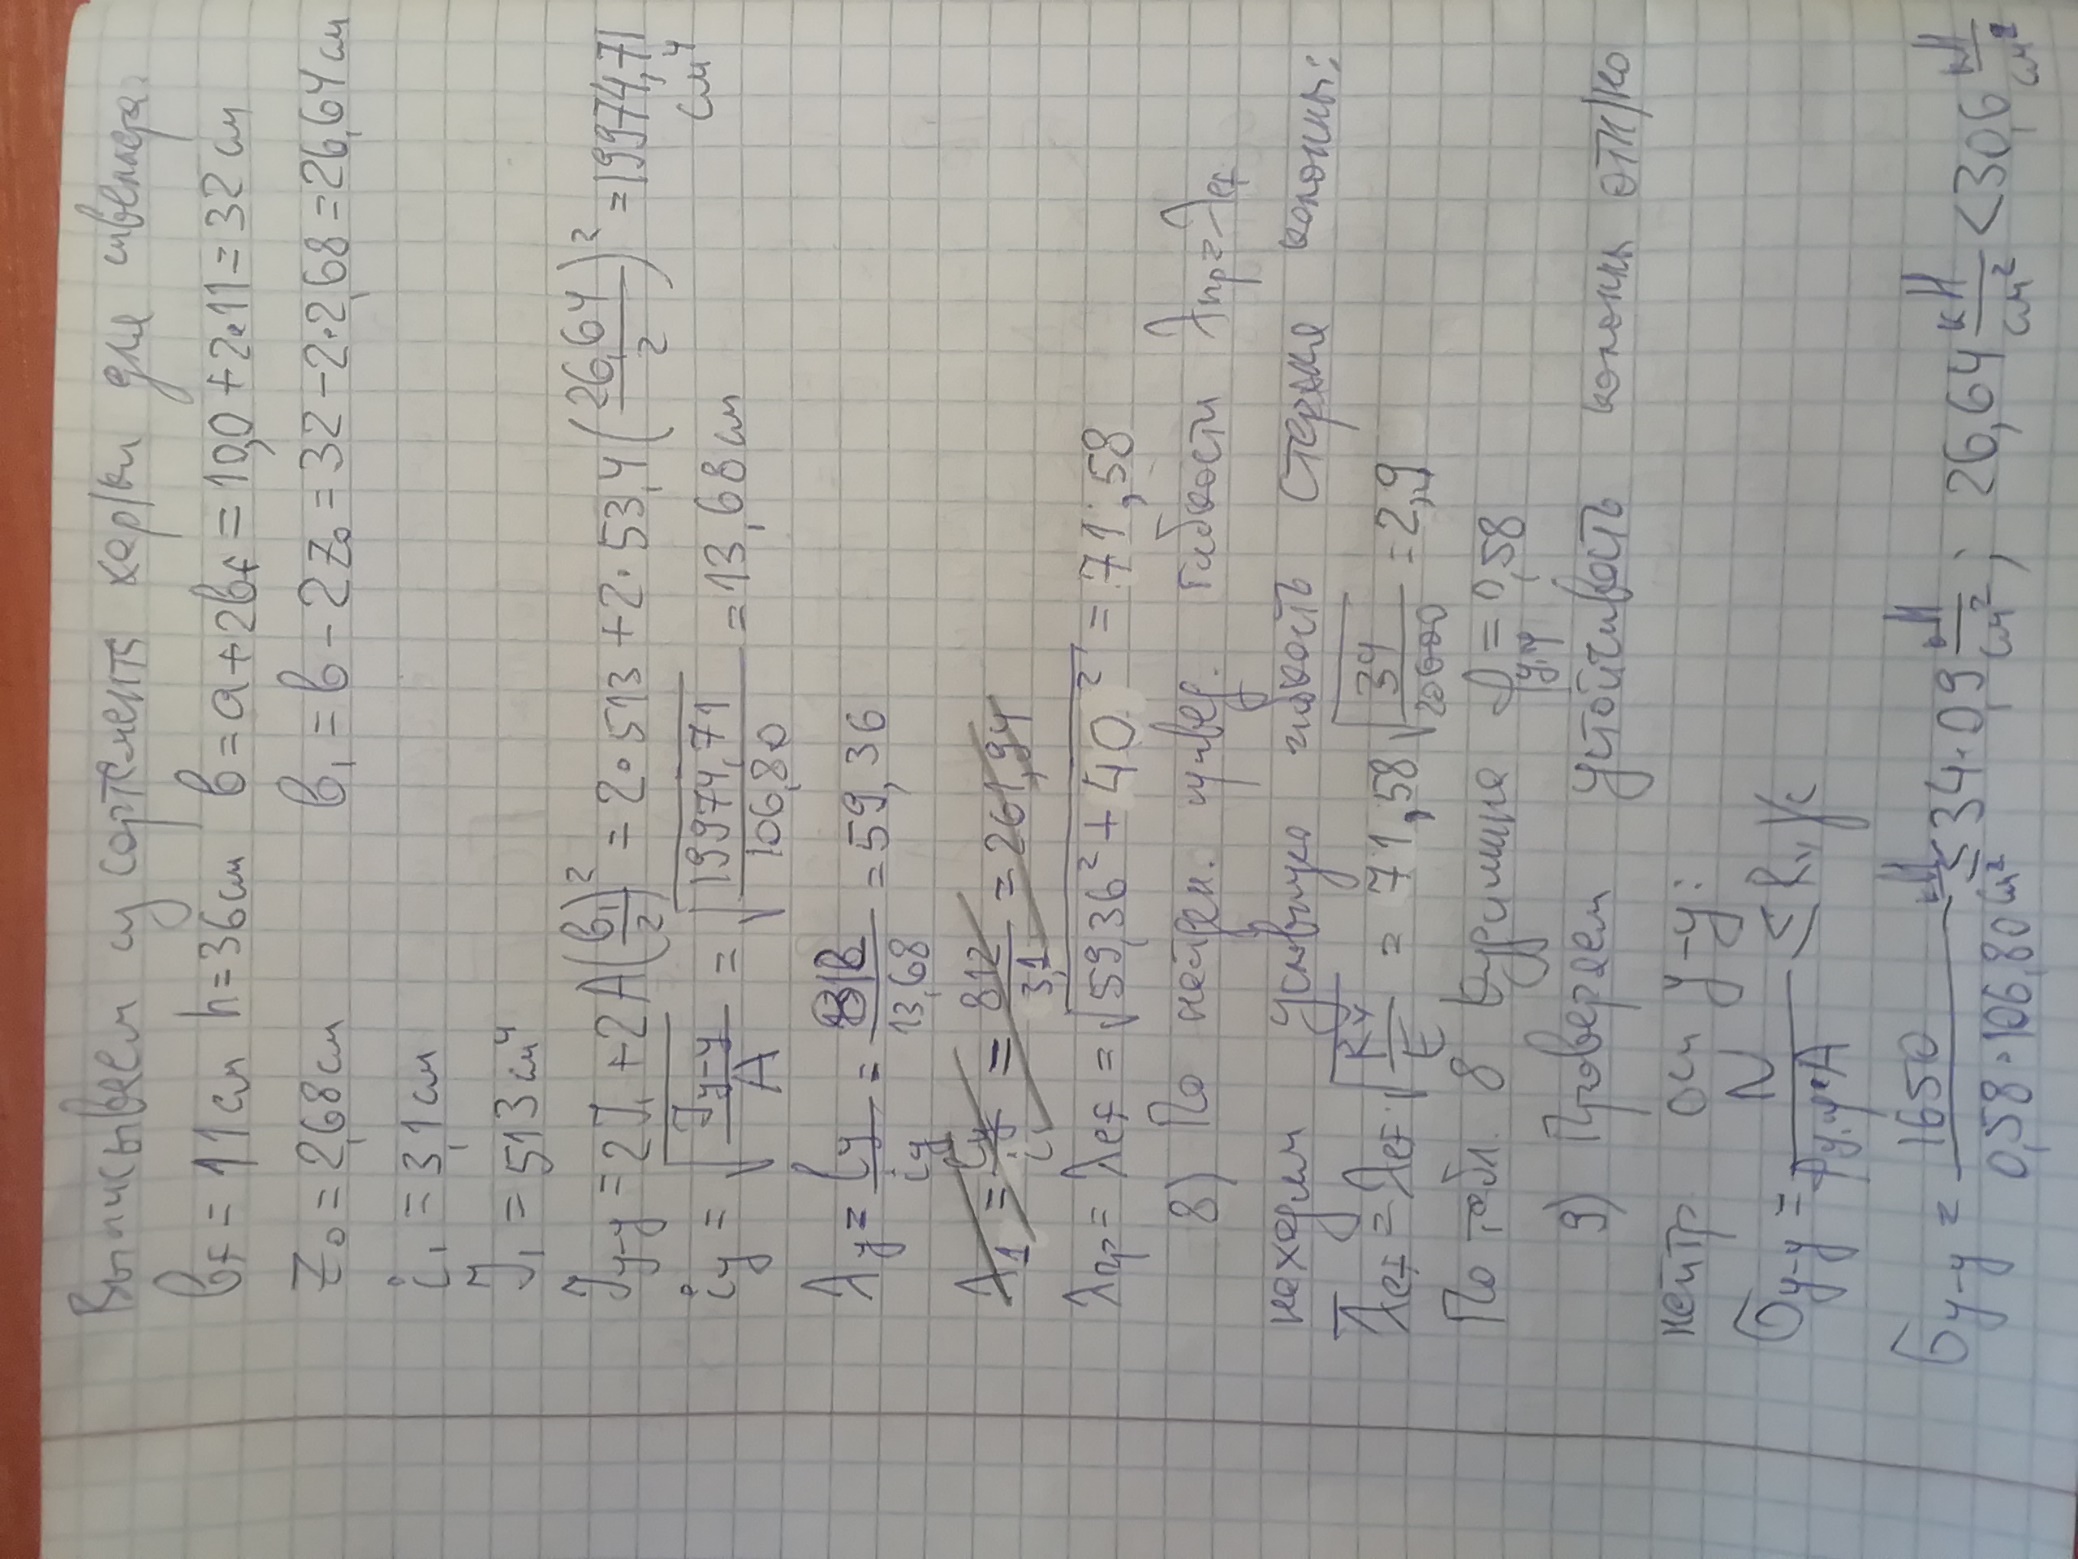 Выписываем из сортамента хар/ки для швеллера.
bf = 11 см h = 36 см b = a + 2bf = 10,0 + 2·11 = 32 см
z₀ = 2,68 см b₁ = b - 2z₀ = 32 - 2·2,68 = 26,64 см
i₁ = 3,1 см
J₁ = 513 см⁴
Jy-y = 2J₁ + 2A(b₁/2)² = 2·513 + 2·53,4(26,64/2)² = 19974,71 см⁴
iy = √(Jy-y/A) = √(19974,71/106,80) = 13,68 см
λy = ly/iy = 812/13,68 = 59,36
λпр = λef = √(59,36² + 40²) = 71,58
8) По наибол. гибкости λпр = λef
находим условную гибкость стержня колонны:
λ̅ef = λef·√(Ry/E) = 71,58√(34/20600) = 2,9
По табл. 8 φy.пр = 0,58
9) Проверяем устойчивость колонны отн/но
нейтр оси y-y:
σy-y = N/φy.пр·A ≤ Ry γc
σy-y = 1650/0,58·106,80 кН/см² ≤ 34·0,9 кН/см²; 26,64 кН/см² < 30,6 кН/см²